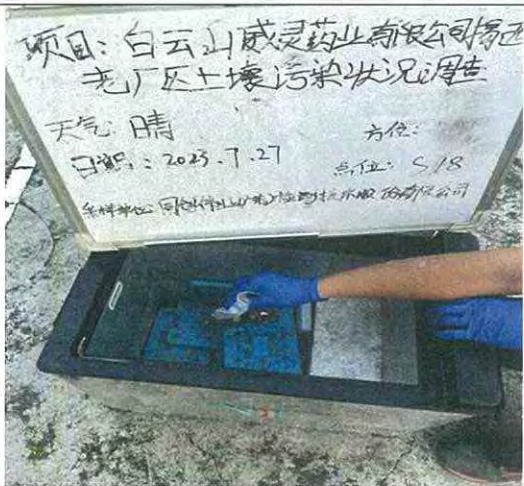 项目：白云山威灵药业有限公司揭西
老厂区土壤污染状况调查
天气：晴
方位：
日期：2023.7.27
点位：S18
采样单位：同创伟业（广东）检测技术股份有限公司